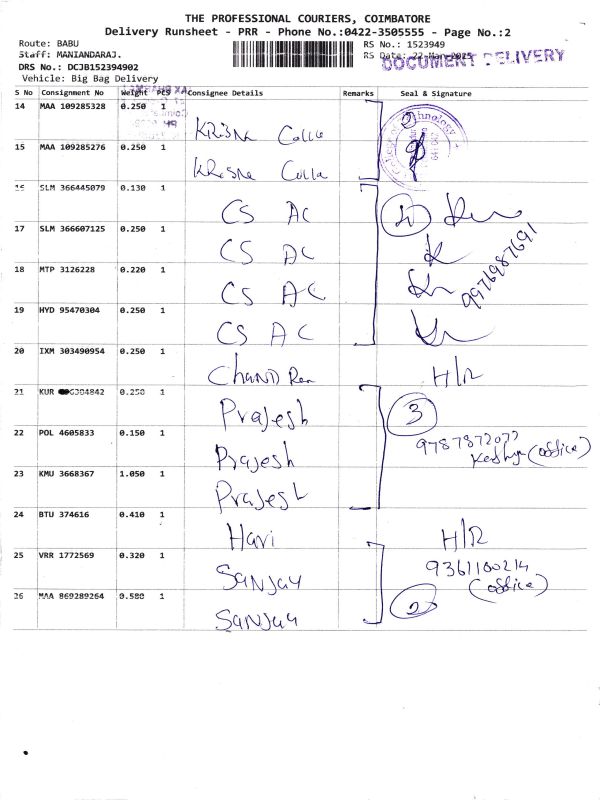 THE PROFESSIONAL COURIERS, COIMBATORE
Delivery Runsheet - PRR - Phone No.:0422-3505555 - Page No.:2
Route: BABU
RS No.: 1523949
Staff: MANIANDARAJ.
RS Date: 22-Mar-2025
DOCUMENT DELIVERY
DRS No.: DCJB152394902
Vehicle: Big Bag Delivery
S No Consignment No Weight PCS Consignee Details Remarks Seal & Signature
14 MAA 109285328 0.250 1 KRISna Colle
15 MAA 109285276 0.250 1 KRISna Colla
16 SLM 366445079 0.130 1 CS AC
17 SLM 366607125 0.250 1 CS AC
18 MTP 3126228 0.220 1 CS AC
9976987691
19 HYD 95470304 0.250 1 CS AC
20 IXM 303490954 0.250 1 Chand Ran H/R
21 KUR 304842 0.250 1 Prajesh 3
22 POL 4605833 0.150 1 Prajesh 9787872077
(office)
23 KMU 3668367 1.050 1 Prajesh
24 BTU 374616 0.410 1 Hari H/R
25 VRR 1772569 0.320 1 Sanjay 9361100214
(office)
26 MAA 869289264 0.580 1 Sanjay 2